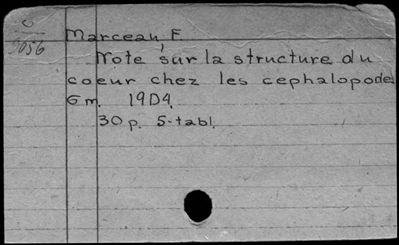 C
9056
Marceau, F.
Note sur la structure du
coeur chez les cephalopodes
6m. 1904.
30p. 5-tabl.